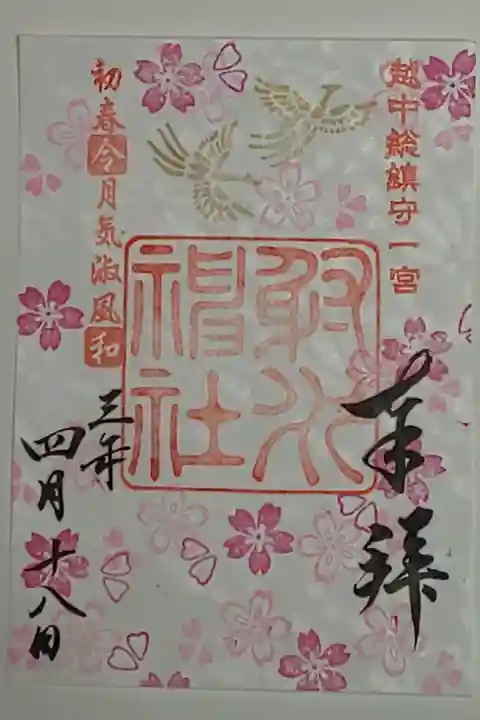 越中総鎮守一宮
奉拝
射水神社
初春令月気淑風和
三年
四月十八日